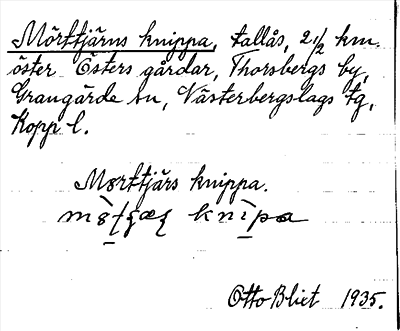 Mörttjärns knippa, tallås, 2 1/2 km.
öster Östers gårdar, Thorsbergs by,
Grangärde sn, Västerbergslags tg,
Kopp l.
Mørttjärs knippa.
Otto Blixt 1935.